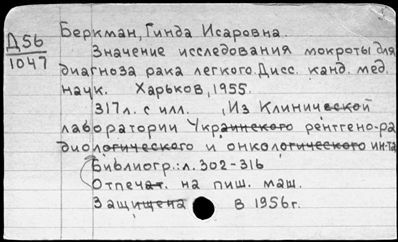 Д56
1047
Беркман, Гинда Исаровна.
Значение исследования мокроты для
диагноза рака легкого. Дисс. канд. мед.
наук. Харьков, 1955.
317л. с илл. , Из Клинической
лаборатории Украинского рентгено-ра
диологического и онкологического ин-та
Библиогр.: л. 302-316
Отпечат. на пиш. маш.
Защищена в 1956г.